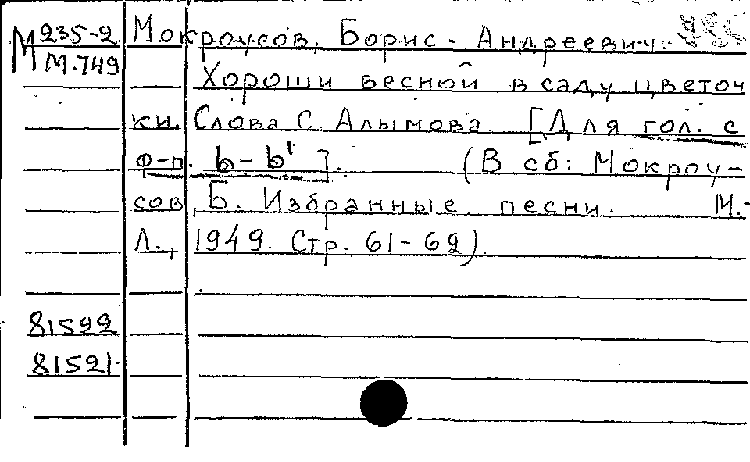 М 235-2 Мокроусов, Борис Андреевич.
М.749 Хороши весной в саду цветоч
ки. Слова С. Алымова [Для гол. с
ф-п. b-b¹]. (В сб: Мокроу-
сов, Б. Избранные песни. М.-
Л., 1949. Стр. 61-62).
81592
81521